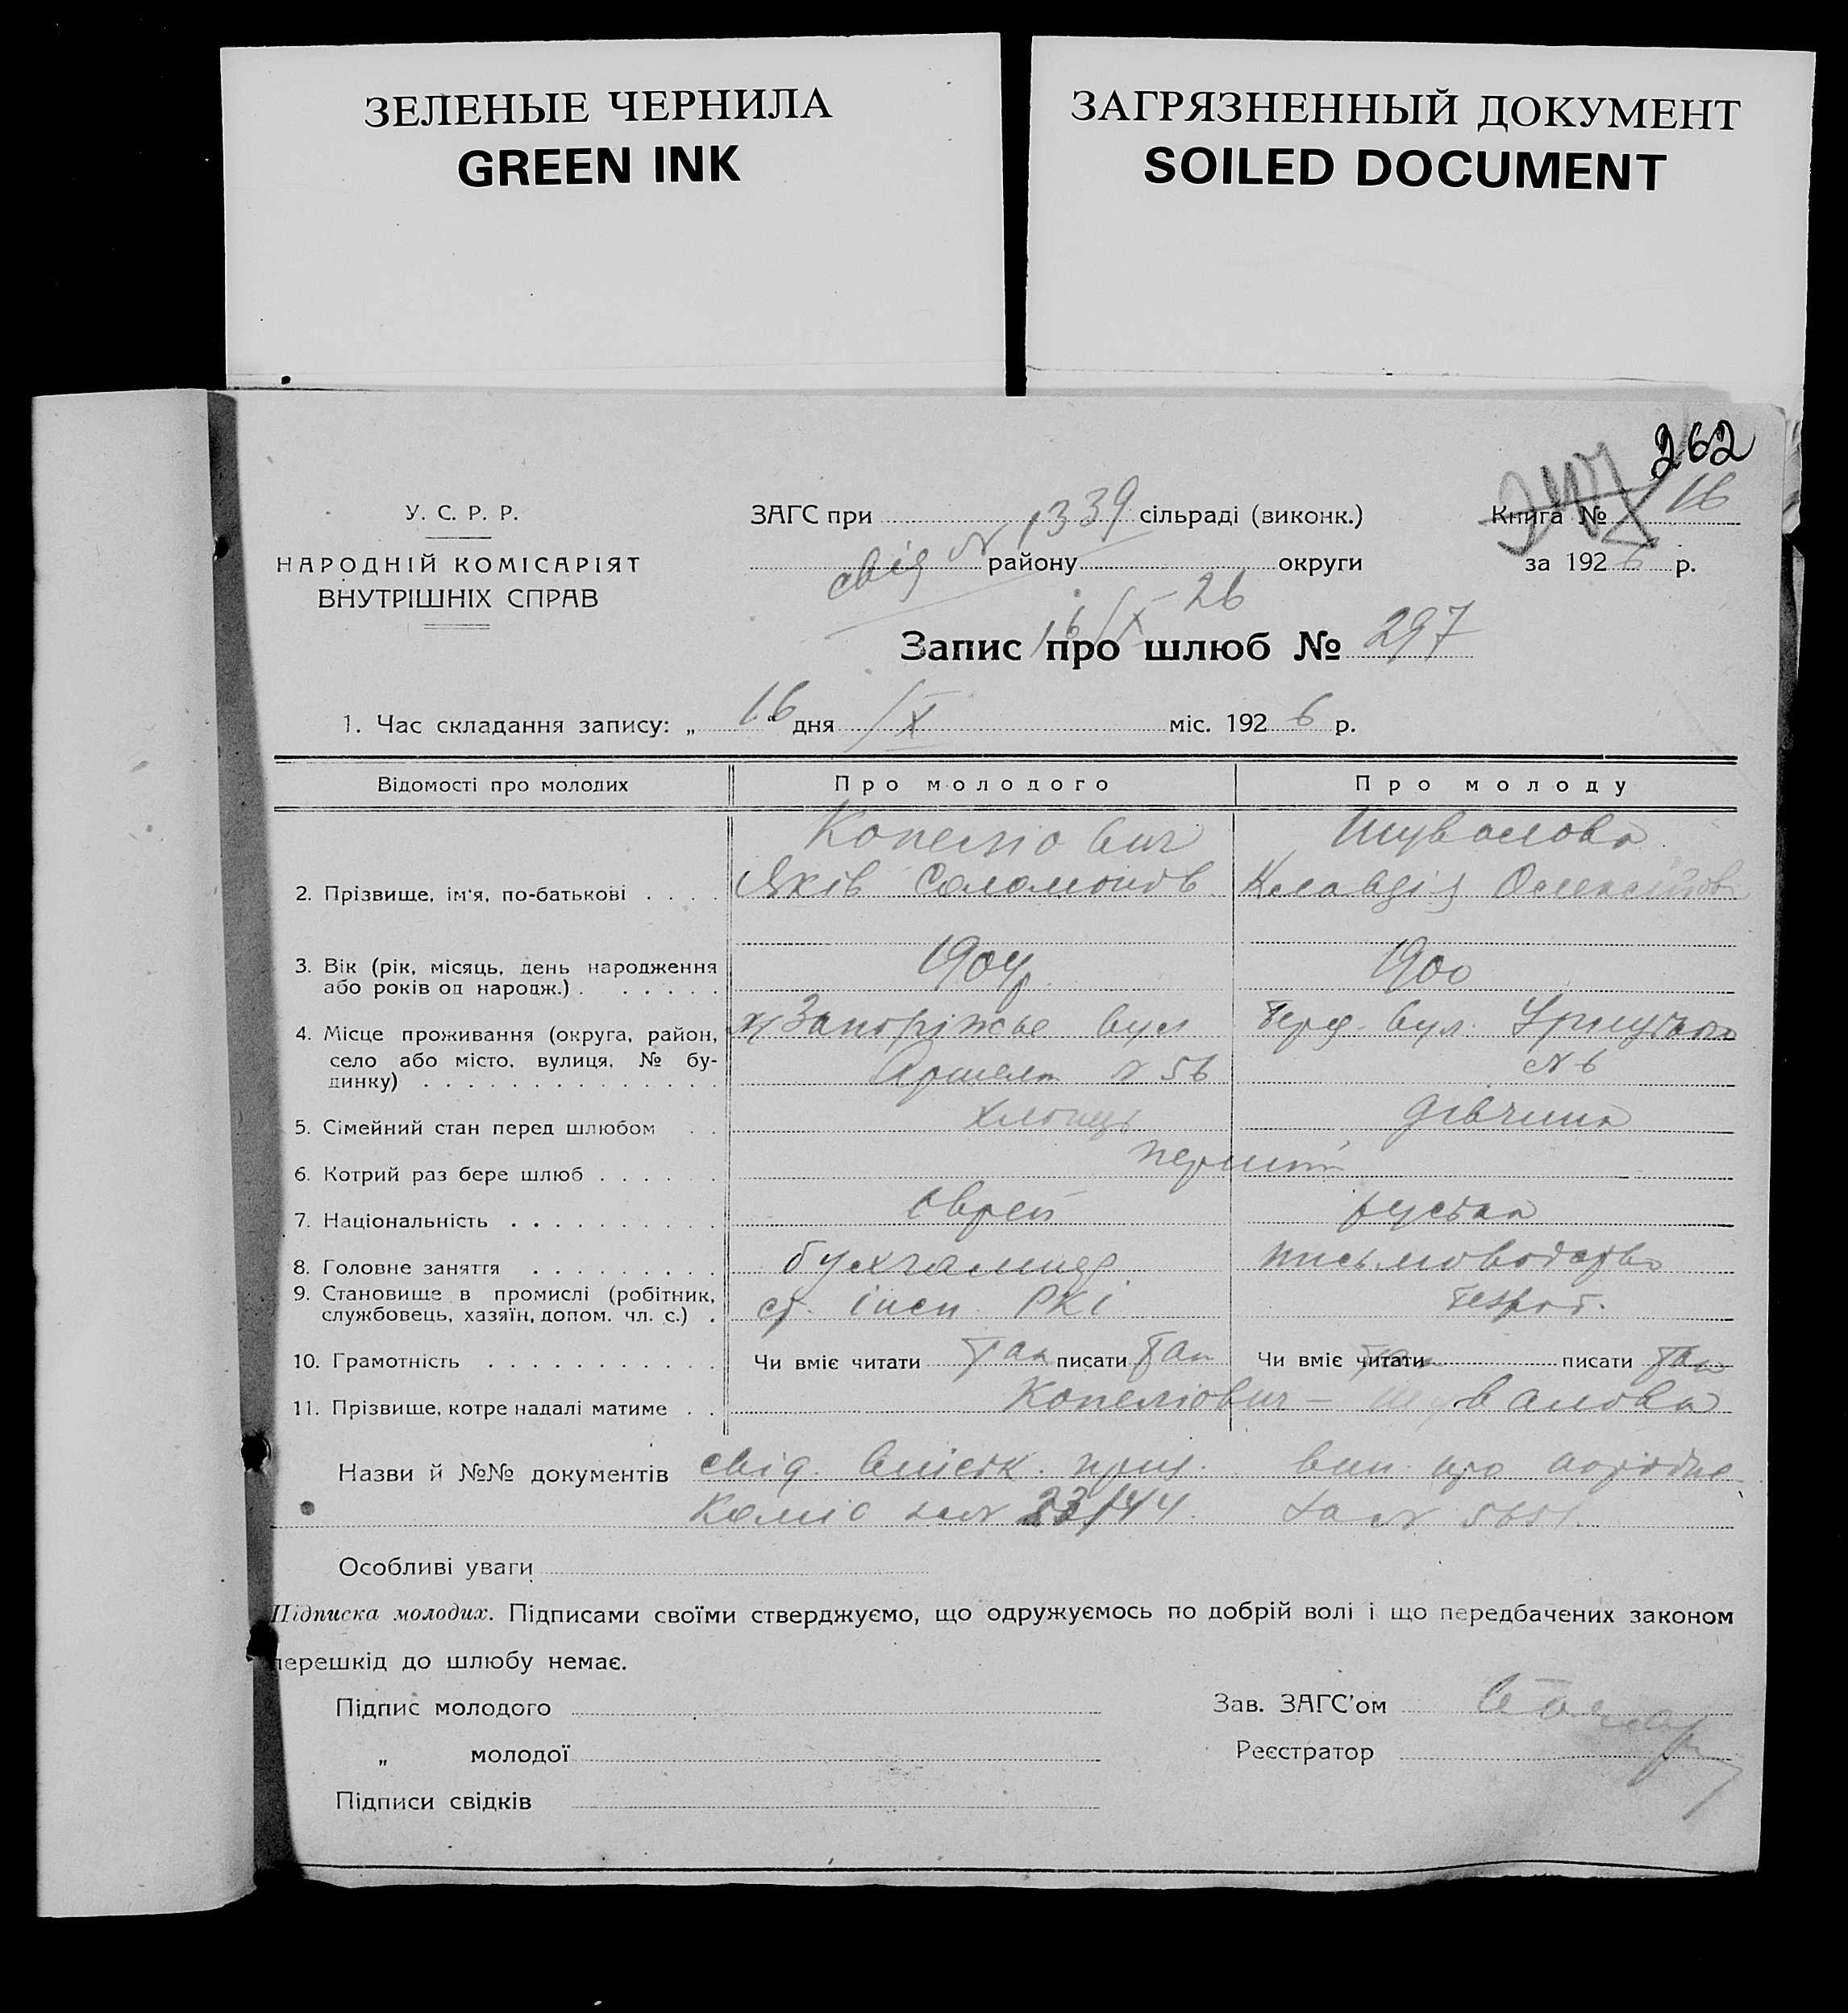 ЗЕЛЕНЫЕ ЧЕРНИЛА
GREEN INK
ЗАГРЯЗНЕННЫЙ ДОКУМЕНТ
SOILED DOCUMENT
262
У. С. Р. Р.
НАРОДНІЙ КОМІСАРІЯТ
ВНУТРІШНІХ СПРАВ
ЗАГС при сільраді (виконк.)
району округи
свід № 1339
16/IX 26
Книга № 16
за 1926 р.
Запис про шлюб № 297
1. Час складання запису: „16“ дня IX міс. 1926 р.
Відомості про молодих Про молодого Про молоду
2. Прізвище, ім'я, по-батькові . . . .
Копеліович
Яків Соломонов
Шувалова
Клавдія Олексіїов
3. Вік (рік, місяць, день народження
або років од народж.) . . . . . .
1904р
1900
4. Місце проживання (округа, район,
село або місто, вулиця, № бу-
динку) . . . . . . . . . . . . . .
Запоріжжє вул
Артема № 56
вул.
№ 6
5. Сімейний стан перед шлюбом . .
хлопець
дівчина
6. Котрий раз бере шлюб . . . . . .
перший
7. Національність . . . . . . . . . .
єврей
руська
8. Головне заняття . . . . . . . . .
бухгалтер
письмоводство
9. Становище в промислі (робітник,
службовець, хазяїн, допом. чл. с.) .
ст. інсп РКІ
безроб.
10. Грамотність . . . . . . . . . . .
Чи вміє читати так писати так
Чи вміє читати так писати так
11. Прізвище, котре надалі матиме . .
Копеліович – Шувалова
Назви й №№ документів свід. приз. вип. про
Коміс за № 23/144. за №
Особливі уваги
Підписка молодих. Підписами своїми стверджуємо, що одружуємось по добрій волі і що передбачених законом
перешкід до шлюбу немає.
Підпис молодого
„ молодої
Підписи свідків
Зав. ЗАГС'ом
Реєстратор